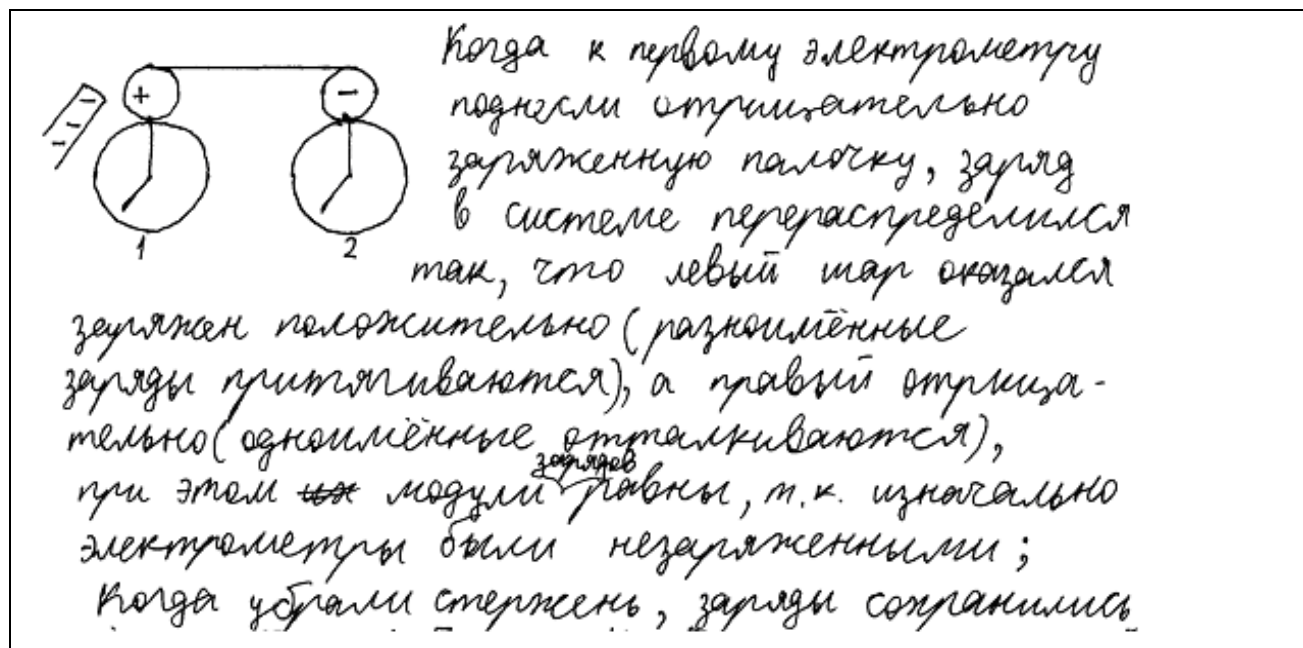 Когда к первому электрометру
поднесли отрицательно
заряженную палочку, заряд
в системе перераспределился
так, что левый шар оказался
заряжен положительно (разноимённые
заряды притягиваются), а правый отрица-
тельно (одноимённые отталкиваются),
при этом модули зарядов равны, т.к. изначально
электрометры были незаряженными;
Когда убрали стержень, заряды сохранились
+ -
- - -
1 2